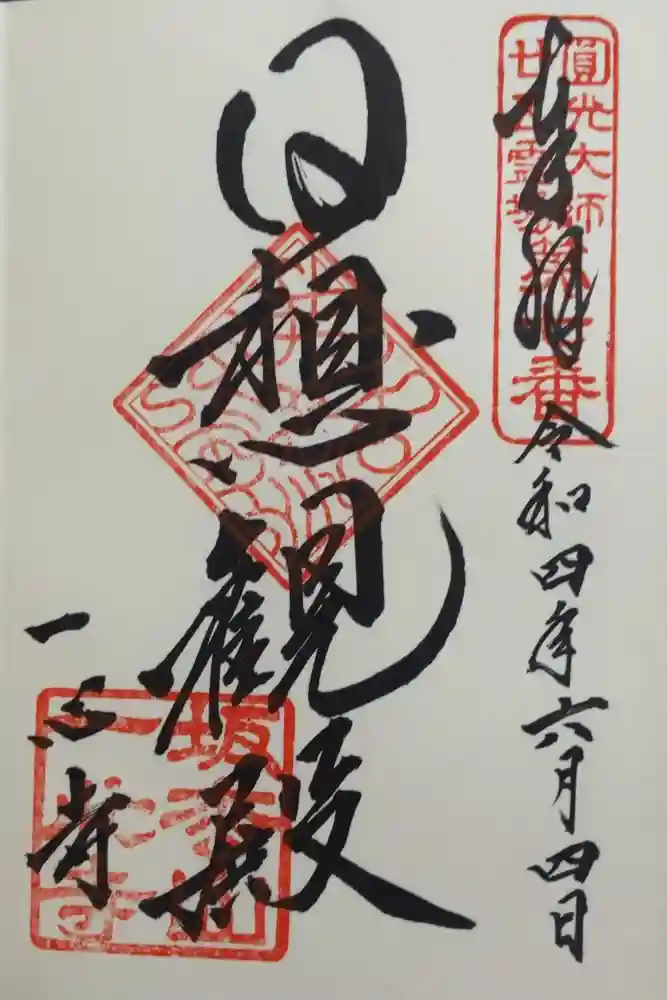 奉拝 令和四年六月四日
圓光大師
廿五霊場第七番
日想観殿
一心寺
坂松山
一心寺